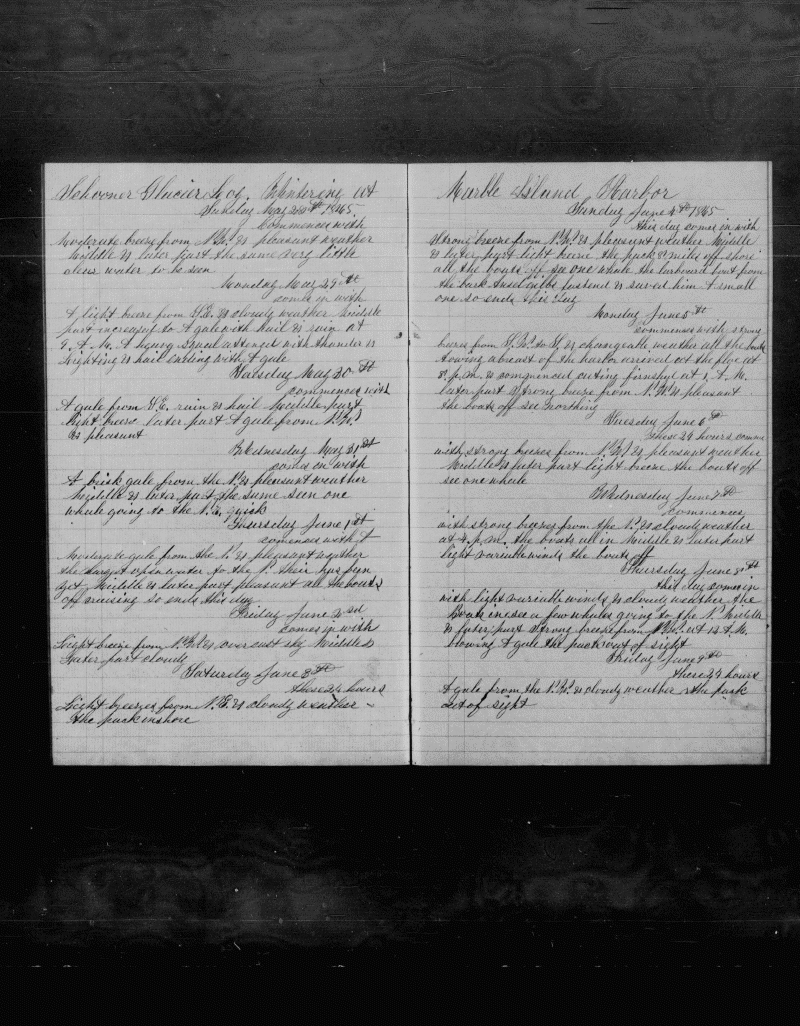 Schooner Glacier Log. Wintering at
Sunday May 28th 1865
Commences with
Moderate breeze from N.W. & pleasant weather
middle & later part the same very little
clear water to be seen
Monday May 29th
comes in with
A light breeze from S.E. & cloudy weather Middle
part increasing to A gale with hail & rain at
A. M. A heavy squal attended with thunder &
Lighting & hail ending with A gale
Tuesday May 30th
commences with
A gale from N.E. rain & hail Middle part
light breeze later part A gale from N.W.
& pleasant
Wednesday May 31st
comes in with
A brisk gale from the N. & pleasant weather
Middle & later part the same seen one
whale going to the N.E. quick
Thursday June 1st
comences with
Moderate gale from the N. & pleasant weather
the largest open water to the N. their has ben
yet. Middle & later part pleasant all the boats
off cruising so ends this day
Friday June 2nd
comes in with
Light breeze from N.W. & over cast sky Middle &
Later part cloudy
Saturday June 3th
these 24 hours
Light breezes from N.E. & cloudy weather
the pack inshore
Marble Island Harbor
Sunday June 4th 1865
this day comes in with
Strong breeze from N.W. & pleasant weather Middle
& later part light breeze the pack 8 miles off shore
all the boats off se one whale the larboard boat from
the bark Ansel Gibbs fastend & saved him A small
one so ends this day
Monday June 5th
commences with strong
breeze from S.W. to S. & changeable weather all the boats
towing abreast of the harbor arrived at the floe at
8. p.m. & commenced cuting finished at 1. A. M.
later part Strong breeze from N.W. & pleasant
the boats off see northing
Tuesday June 6th
these 24 hours comme
with strong breezes from N.W. & pleasant weather
Middle & later part light breeze the boats off
see one whale
Wednesday June 7th
commences
with strong breezes from the N. & cloudy weather
at 4. p.m. the boats all in Middle & later part
light variable winds the boats off
Thursday June 8th
this day comes in
with light variable winds & cloudy weather the
Boats in, see a few whales going to the N. Middle
& later part strong breeze from N.W. at 12 A. M.
blowing A gale the pack out of sight
Friday June 9th
these 24 hours
A gale from the N.W. & cloudy weather & the pack
out of sight